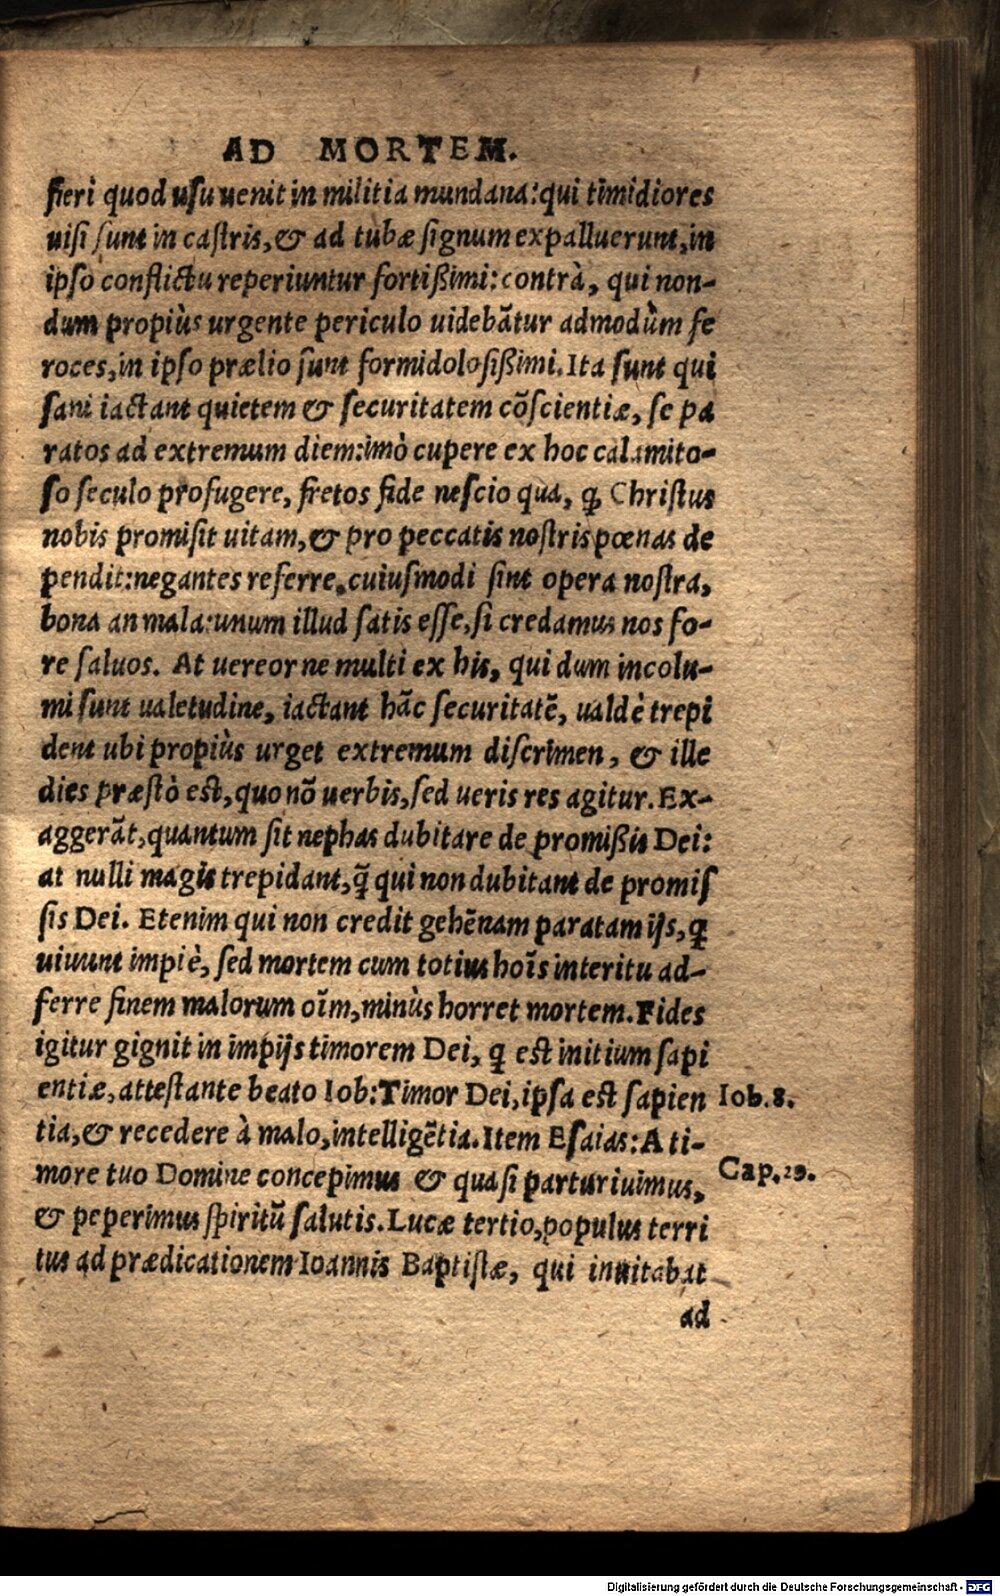 AD MORTEM.
fieri quod uſu uenit in militia mundana: qui timidiores
uiſi ſunt in caſtris, & ad tubæ ſignum expalluerunt, in
ipſo conflictu reperiuntur fortißimi: contrà, qui non-
dum propiùs urgente periculo uidebãtur admodùm fe
roces, in ipſo prælio ſunt formidoloſißimi. Ita ſunt qui
ſani iactant quietem & ſecuritatem cõſcientiæ, ſe pa
ratos ad extremum diem: imò cupere ex hoc calamito-
ſo ſeculo profugere, fretos fide neſcio qua, ꝙ Chriſtus
nobis promiſit uitam, & pro peccatis noſtris pœnas de
pendit: negantes referre, cuiuſmodi ſint opera noſtra,
bona an mala: unum illud ſatis eſſe, ſi credamus nos fo-
re ſaluos. At uereor ne multi ex his, qui dum incolu-
mi ſunt ualetudine, iactant hãc ſecuritatẽ, ualdè trepi
dent ubi propiùs urget extremum diſcrimen, & ille
dies præſtò eſt, quo nõ uerbis, ſed ueris res agitur. Ex-
aggerãt, quantum ſit nephas dubitare de promißis Dei:
at nulli magis trepidant, q̃ qui non dubitant de promiſ
ſis Dei. Etenim qui non credit gehẽnam paratam ijs, ꝗ
uiuunt impiè, ſed mortem cum totius hoĩs interitu ad-
ferre finem malorum oĩm, minùs horret mortem. Fides
igitur gignit in impijs timorem Dei, ꝗ eſt initium ſapi
entiæ, atteſtante beato Iob: Timor Dei, ipſa eſt ſapien
Iob. 8.
tia, & recedere à malo, intelligẽtia. Item Eſaias: A ti-
more tuo Domine concepimus & quaſi parturiuimus,
Cap. 29.
& peperimus ſpiritũ ſalutis. Lucæ tertio, populus terri
tus ad prædicationem Ioannis Baptiſtæ, qui inuitabat
ad
Digitalisierung gefördert durch die Deutsche Forschungsgemeinschaft - DFG